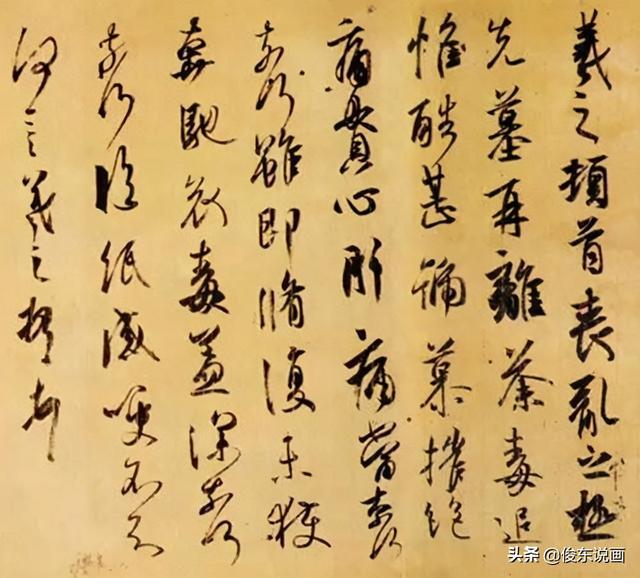 羲之頓首喪亂之極
先墓再離荼毒追
惟酷甚號慕摧絕
痛貫心肝痛當奈何
奈何雖即脩復未獲
奔馳哀毒益深奈何
奈何臨紙感哽不知
何言羲之頓首頓首
头条 @俊东说画